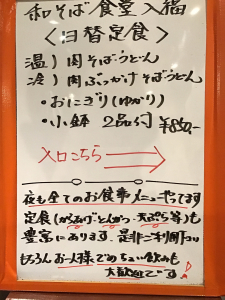 和そば 食堂 入福
〈日替定食〉
温）肉そばうどん
冷）肉ぶっかけそばうどん
・おにぎり（ゆかり）
・小鉢 2品付 ¥850,-
入口こちら
夜も全てのお食事メニューやってます
定食（からあげ・とんかつ・天ぷら等）も
豊富にあります。是非ご利用下さい
もちろんお一人様でのちょい飲みも
大歓迎です！